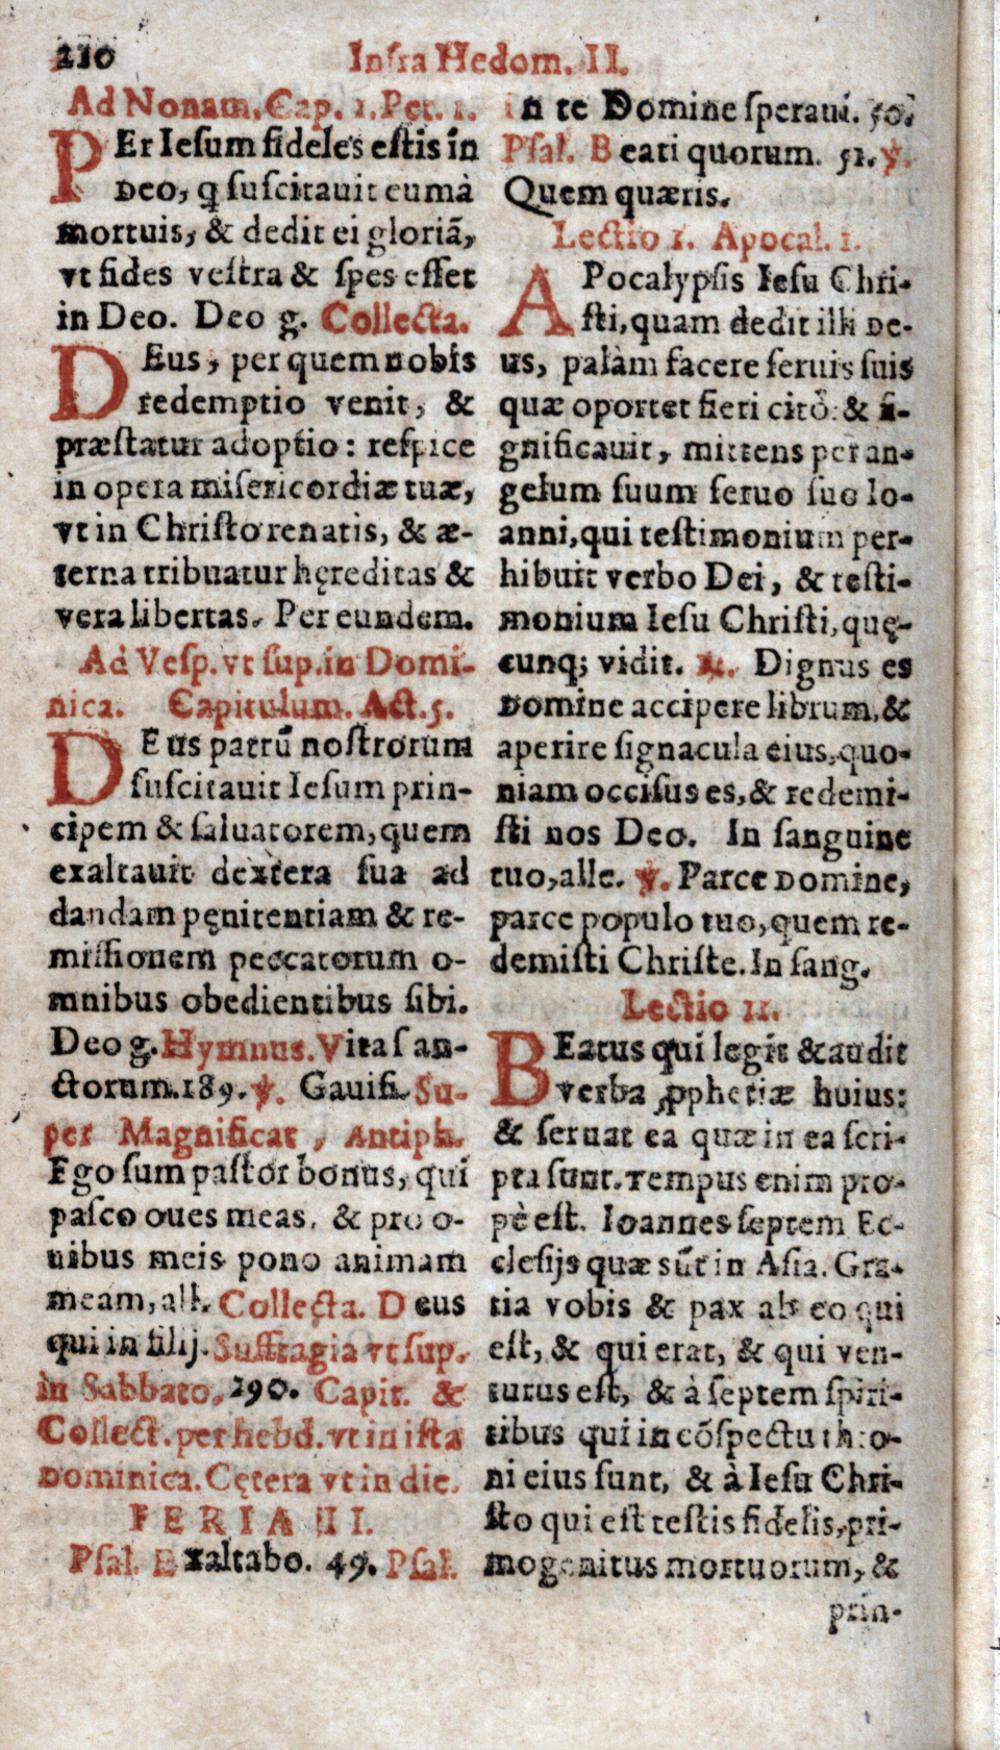 210
Infra Hedom. II.
Ad Nonam. Cap. 1. Pet. 1.
PEr Iesum fideles estis in
Deo, ꝗ suscitauit eum à
mortuis, & dedit ei gloriã,
vt fides vestra & spes esset
in Deo. Deo g. Collecta.
DEus, per quem nobis
redemptio venit, &
præstatur adoptio: respice
in opera misericordiæ tuæ,
vt in Christo renatis, & æ-
terna tribuatur hęreditas &
vera libertas. Per eundem.
Ad Vesp. vt sup. in Domi-
nica. Capitulum. Act. 5.
DEus patrũ nostrorum
suscitauit Iesum prin-
cipem & saluatorem, quem
exaltauit dextera sua ad
dandam pęnitentiam & re-
missionem peccatorum o-
mnibus obedientibus sibi.
Deo g. Hymnus. Vita san-
ctorum. 189. ℣. Gauisi. Su-
per Magnificat, Antiph.
Ego sum pastor bonus, qui
pasco oues meas, & pro o-
uibus meis pono animam
meam, all. Collecta. Deus
qui in filij. Suffragia vt sup.
in Sabbato, 290. Capit. &
Collect. per hebd. vt in ista
Dominica. Cętera vt in die.
FERIA II I.
Psal. Exaltabo. 49. Psal.
In te Domine speraui. 50.
Psal. Beati quorum. 51. ℣.
Quem quæris.
Lectio 1. Apocal. 1.
APocalypsis Iesu Chri-
sti, quam dedit illi De-
us, palàm facere seruis suis
quæ oportet fieri citò: & si-
gnificauit, mittens per an-
gelum suum seruo suo Io-
anni, qui testimonium per-
hibuit verbo Dei, & testi-
monium Iesu Christi, quę-
cunq; vidit. ℟. Dignus es
Domine accipere librum, &
aperire signacula eius, quo-
niam occisus es, & redemi-
sti nos Deo. In sanguine
tuo, alle. ℣. Parce Domine,
parce populo tuo, quem re-
demisti Christe. In sang.
Lectio II.
BEatus qui legit & audit
verba ꝓphetiæ huius:
& seruat ea quæ in ea scri-
pta sunt. Tempus enim pro-
pè est. Ioannes septem Ec-
clesijs quæ sũt in Asia. Gra-
tia vobis & pax ab eo qui
est, & qui erat, & qui ven-
turus est, & à septem spiri-
tibus qui in cõspectu thro-
ni eius sunt, & à Iesu Chri-
sto qui est testis fidelis, pri-
mogenitus mortuorum, &
prin-